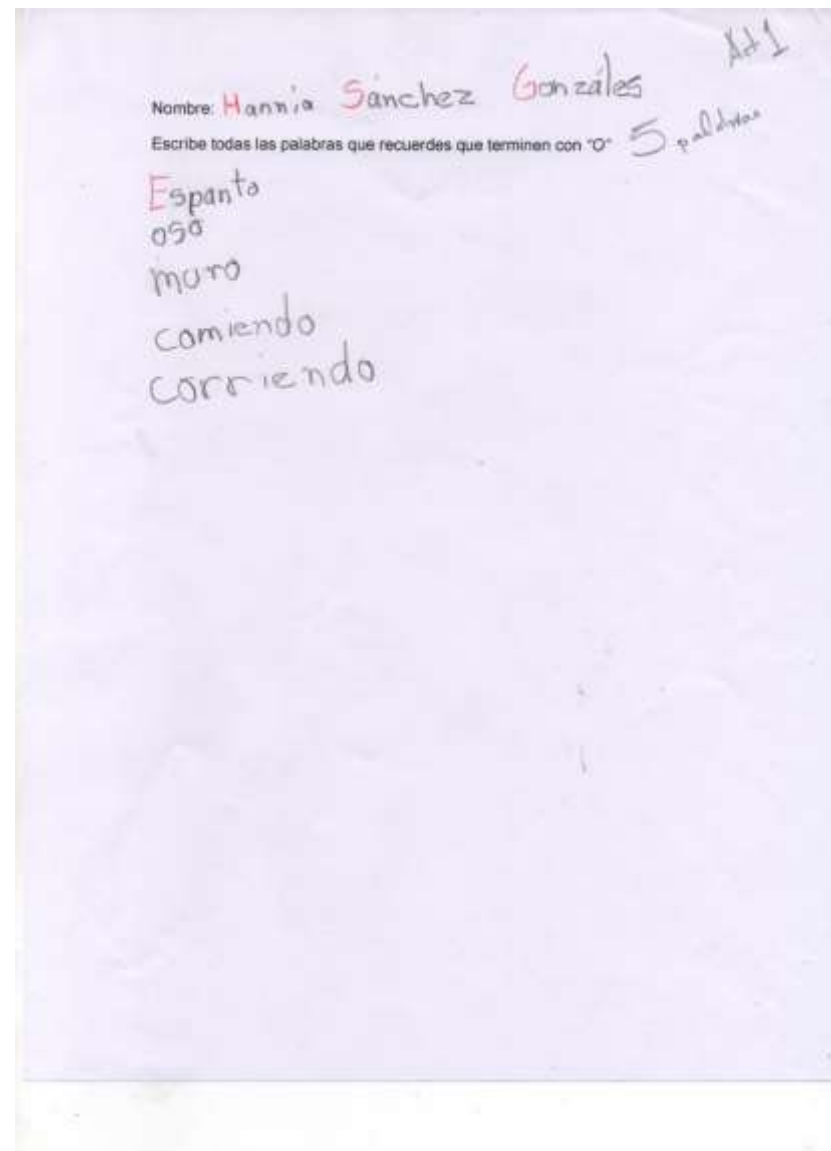 Act 1
Nombre: Hannia Sánchez Gonzáles
Escribe todas las palabras que recuerdes que terminen con "O" 5 palabras
Espanto
oso
muro
comiendo
corriendo